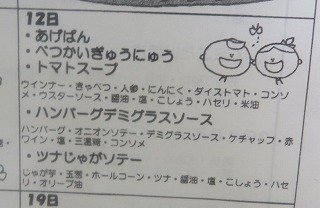 12日
・あげぱん
・べつかいぎゅうにゅう
・トマトスープ
め
ウインナー・きゃべつ・人参・にんにく・ダイストマト・コンソ
メ・ウスターソース・醤油・塩・こしょう・パセリ・米油
・ハンバーグデミグラスソース
ハンバーグ・オニオンソテー・デミグラスソース・ケチャップ・赤
ワイン・塩・三温糖・コンソメ
・ツナじゃがソテー
じゃが芋・玉葱・ホールコーン・ツナ・醤油・塩・こしょう・パセ
リ・オリーブ油
19日